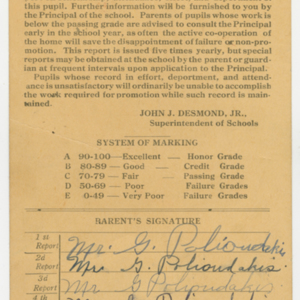 this pupil. Further information will be furnished to you by
the Principal of the school. Parents of pupils whose work is
below the passing grade are advised to consult the Principal
early in the school year, as often the active co-operation of
the home will save the disappointment of failure or non-pro-
motion. This report is issued five times yearly, but special
reports may be obtained at the school by the parent or guard-
ian at frequent intervals upon application to the Principal.
Pupils whose record in effort, department, and attend-
ance is unsatisfactory will ordinarily be unable to accomplish
the work required for promotion while such record is main-
tained.
JOHN J. DESMOND, JR.,
Superintendent of Schools
SYSTEM OF MARKING
A 90-100—Excellent — Honor Grade
B 80-89—Good — Credit Grade
C 70-79—Fair — Passing Grade
D 50-69—Poor Failure Grades
E 0-49—Very Poor Failure Grades
PARENT'S SIGNATURE
1st
Report Mr. G. Polioudakis
2d
Report Mr. G. Polioudakis
3d
Report Mr G Polioudakis
4th